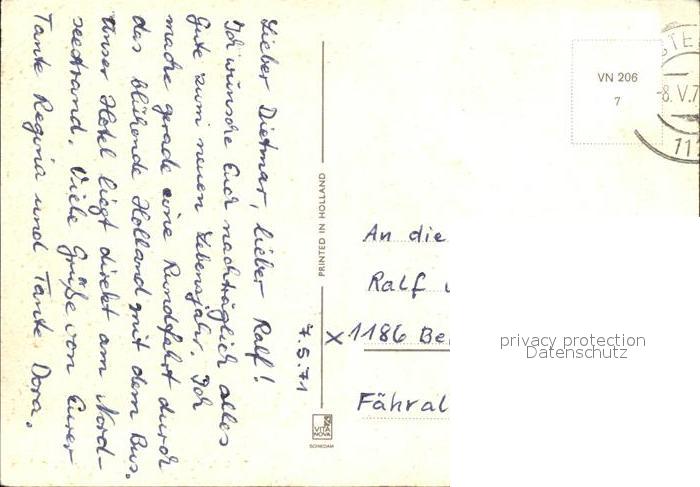 Lieber Dietmar, lieber Ralf!
Ich wünsche Euch nachträglich alles
Gute zum neuen Lebensjahr. Ich
mache gerade eine Rundfahrt durch
das blühende Holland mit dem Bus.
Unser Hotel liegt direkt am Nord-
seestrand. Viele Grüße von Eurer
Tante Regina und Tante Dora.
7.5.71
PRINTED IN HOLLAND
VITA
NOVA
SCHIEDAM
VN 206
7
STE
-8.V.7
11
An die
Ralf
X 1186 Be
Fähral
privacy protection
Datenschutz